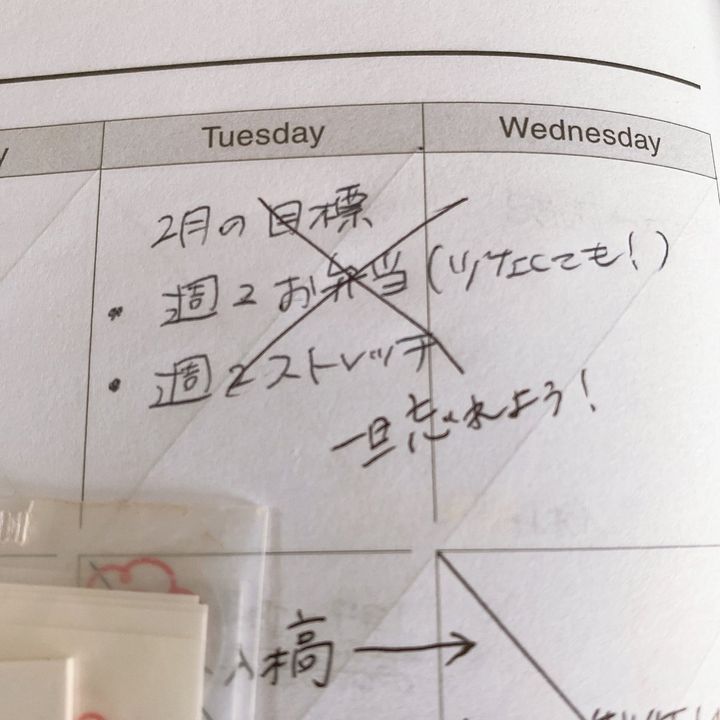 y
Tuesday
Wednesday
2月の目標
・週2お弁当(少なくても!)
・週2ストレッチ
一旦忘れよう!
入稿→